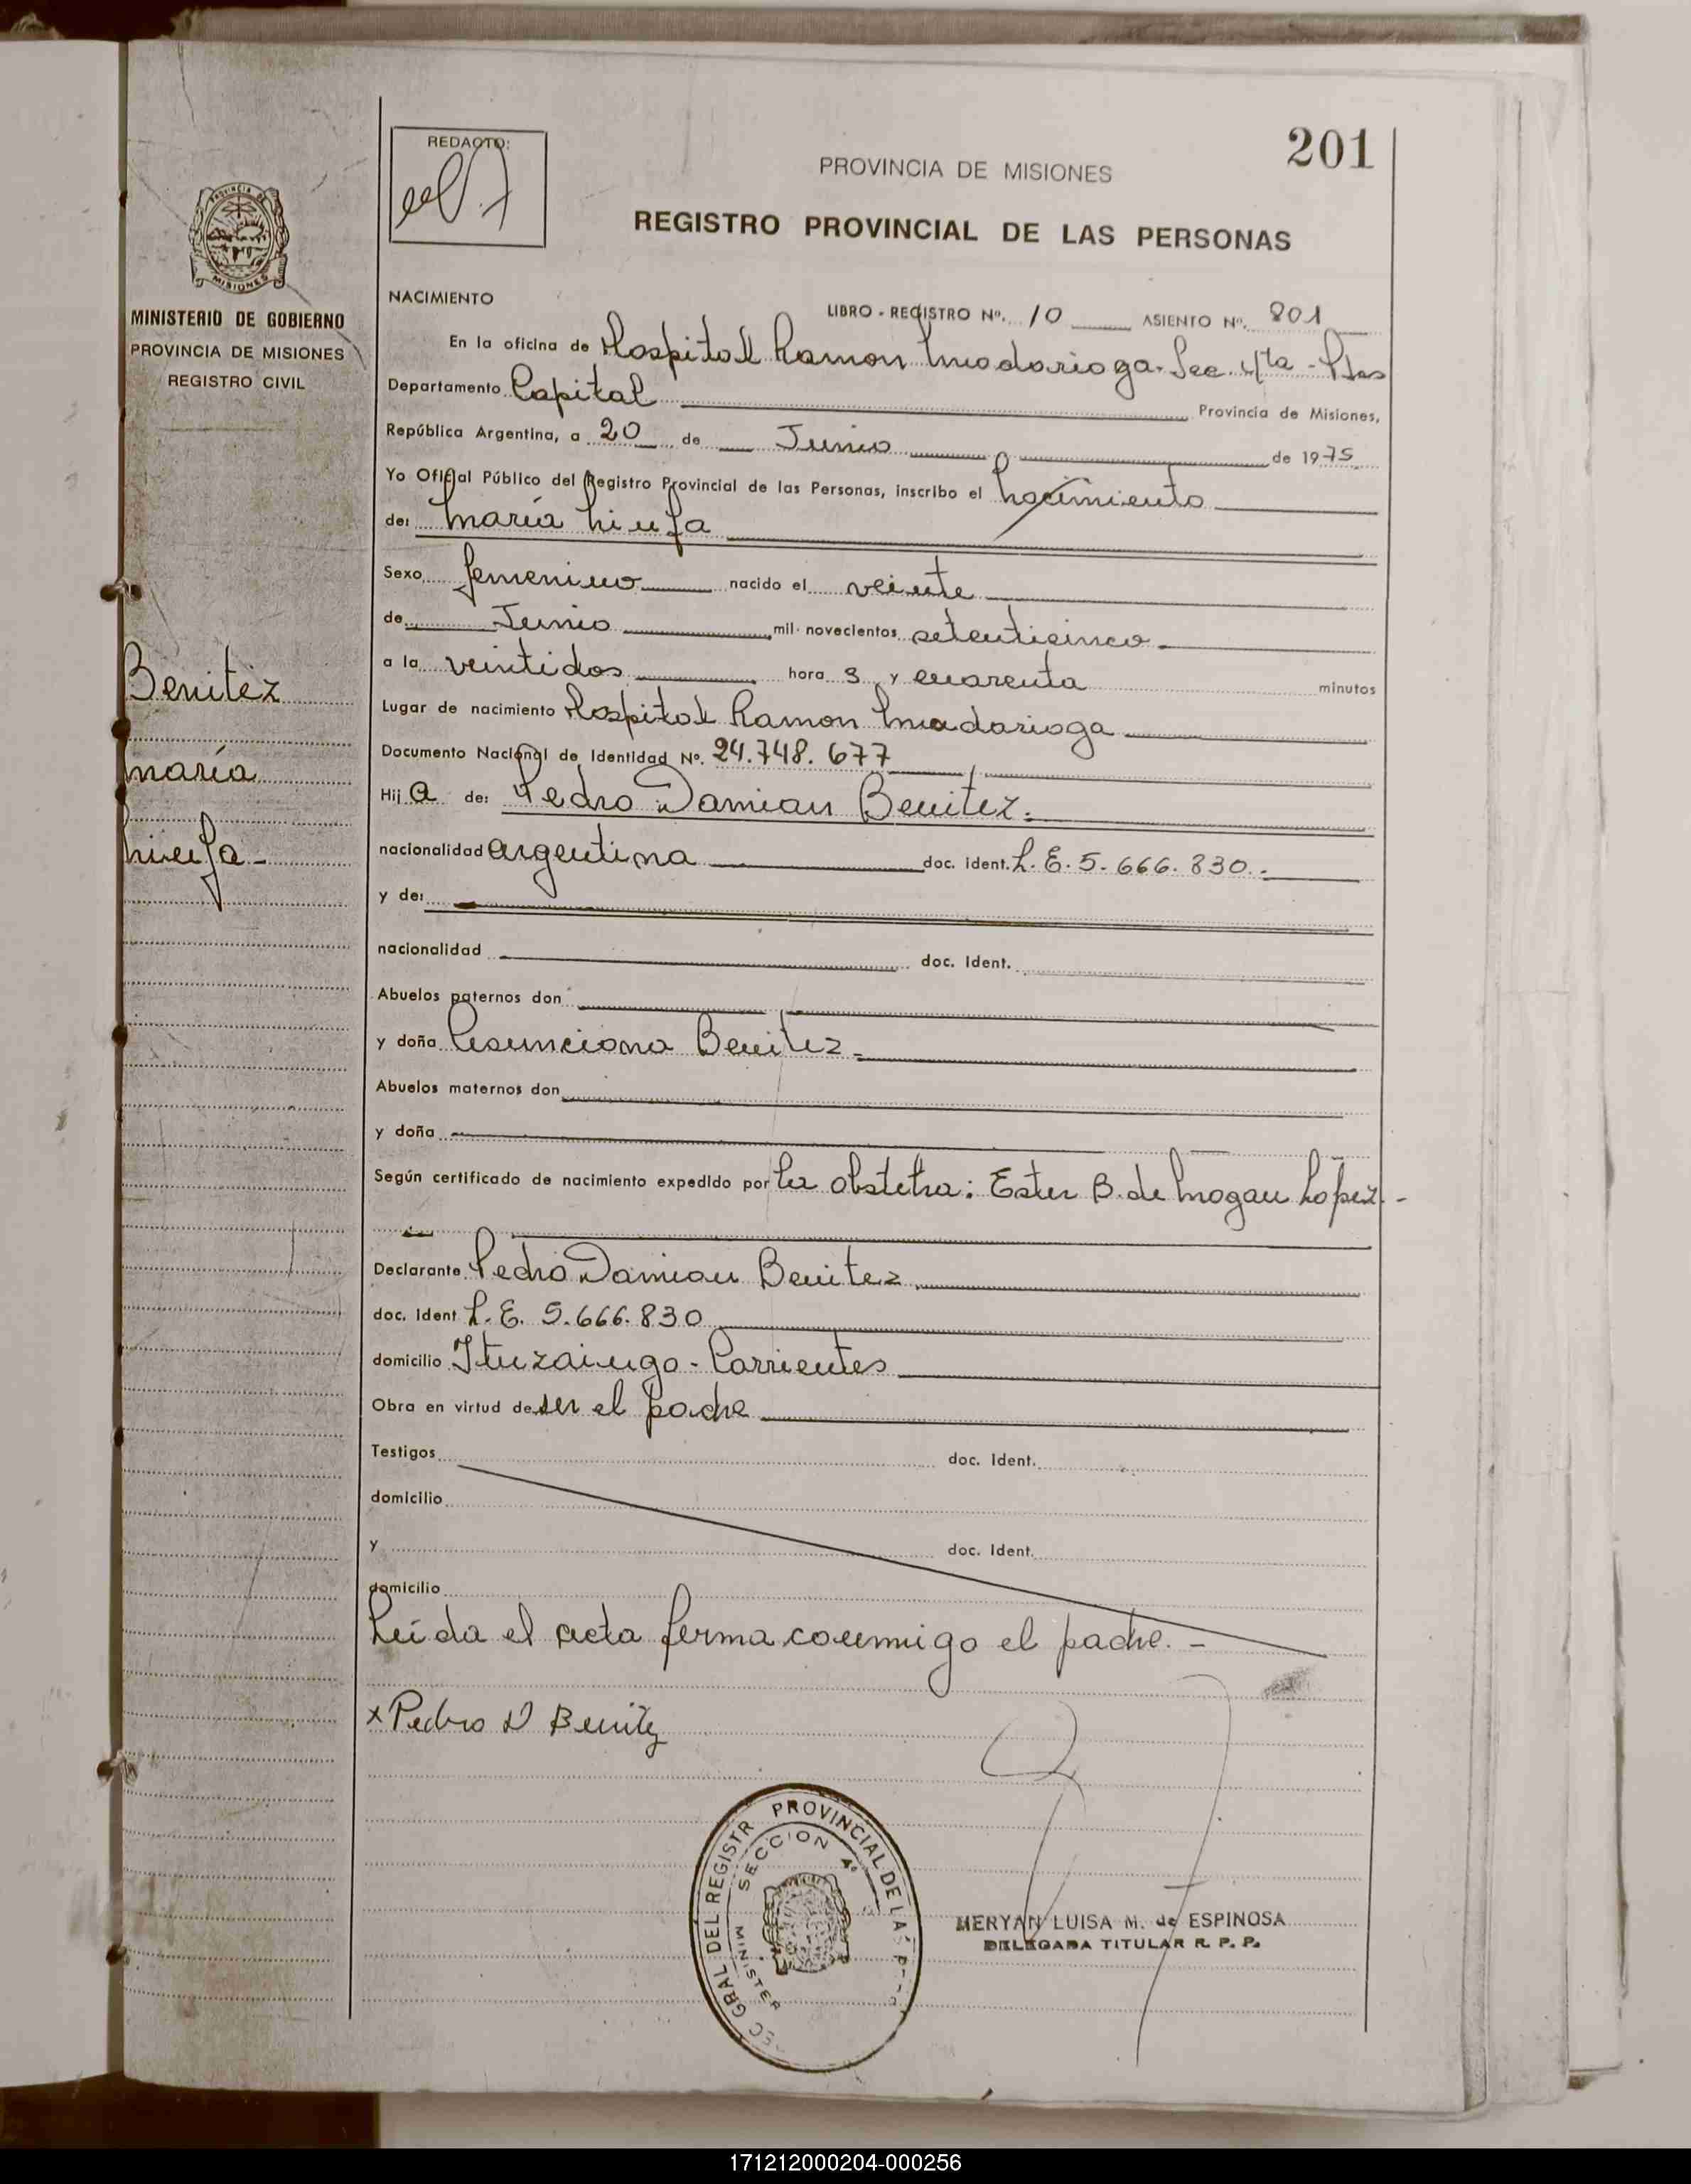 201
REDACTO:
PROVINCIA DE MISIONES
REGISTRO PROVINCIAL DE LAS PERSONAS
PROVINCIA DE
MISIONES
MINISTERIO DE GOBIERNO
PROVINCIA DE MISIONES
REGISTRO CIVIL
NACIMIENTO
LIBRO - REGISTRO Nº. 10 ASIENTO Nº. 801
En la oficina de Hospital Ramon Madariaga. Sec. 4ta - Pdas
Departamento Capital Provincia de Misiones,
República Argentina, a 20 de Junio de 1975
Yo Oficial Público del Registro Provincial de las Personas, inscribo el Nacimiento
de: María Niufa
Sexo femenino nacido el veinte
de Junio mil novecientos setenticinco
a la veintidos hora s y cuarenta minutos
Lugar de nacimiento Hospital Ramon Madariaga
Documento Nacional de Identidad Nº. 24.748.677
Hij a de: Pedro Damian Benitez.
nacionalidad argentina doc. ident. L.E. 5.666.830.-
y de:
nacionalidad doc. Ident.
Abuelos paternos don
y doña Asunciona Benitez
Abuelos maternos don
y doña
Según certificado de nacimiento expedido por la obstetra: Ester B. de Mogan Lopez.-
Declarante Pedro Damian Benitez
doc. Ident L.E. 5.666.830
domicilio Ituzaingo - Corrientes
Obra en virtud de ser el padre
Testigos doc. Ident.
domicilio
y doc. Ident.
domicilio
Leida el acta firma conmigo el padre. -
x Pedro D Benitez
Benitez
María
Niufa-
GRAL DEL REGISTR PROVINCIAL DE LAS P
SECCION 4ª
MINISTER
MERYAN LUISA M. de ESPINOSA
DELEGADA TITULAR R. P. P.
171212000204-000256